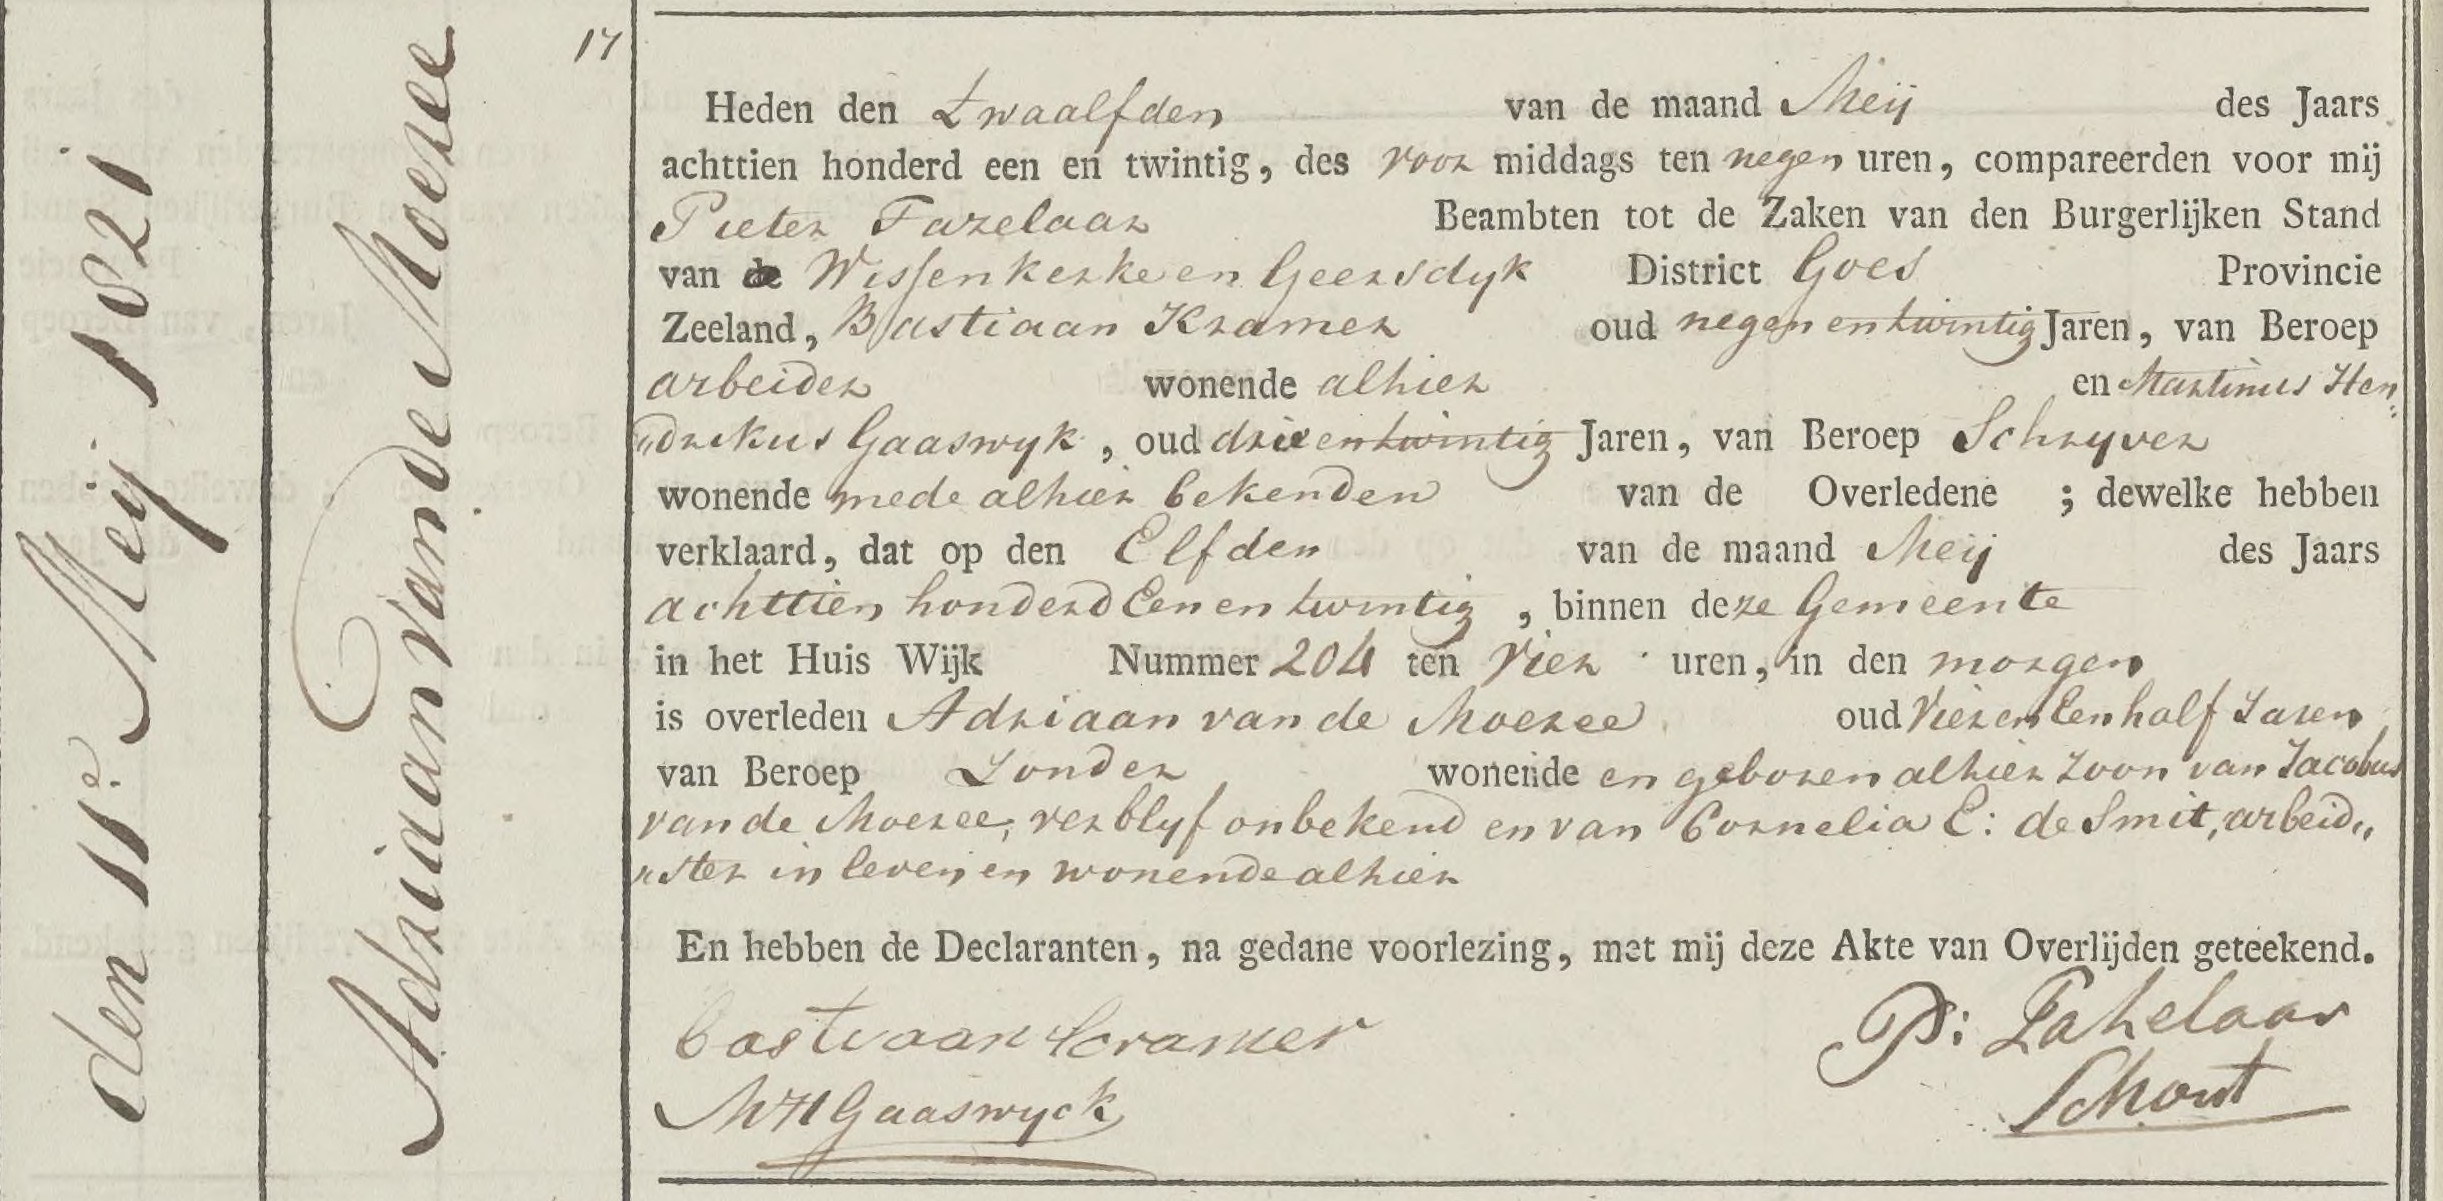 den 11e. Meij 1821
Adriaan van de Moeree
17
Heden den Twaalfden van de maand Meij des Jaars
achttien honderd een en twintig, des voor middags ten negen uren, compareerden voor mij
Pieter Fazelaar Beambten tot de Zaken van den Burgerlijken Stand
van de Wissenkerke en Geersdyk District Goes Provincie
Zeeland, Bastiaan Kramer oud negen en twintig Jaren, van Beroep
arbeider wonende alhier en Martinus Hen„
„drikus Gaaswyk, oud drie en twintig Jaren, van Beroep Schryver
wonende mede alhier bekenden van de Overledene ; dewelke hebben
verklaard, dat op den Elfden van de maand Meij des Jaars
achttien honderd Een en twintig, binnen deze Gemeente
in het Huis Wijk Nummer 204 ten vier uren, in den morgen
is overleden Adriaan van de Moeree oud vier en Een half Jaren
van Beroep Zonder wonende en geboren alhier zoon van Jacobus
van de Moeree, verblyf onbekend en van Cornelia E: de Smit, arbeid„
„ster in leven en wonende alhier
En hebben de Declaranten, na gedane voorlezing, met mij deze Akte van Overlijden geteekend.
bastiaan kramer
P: Fazelaar
MH Gaaswyck
Schout